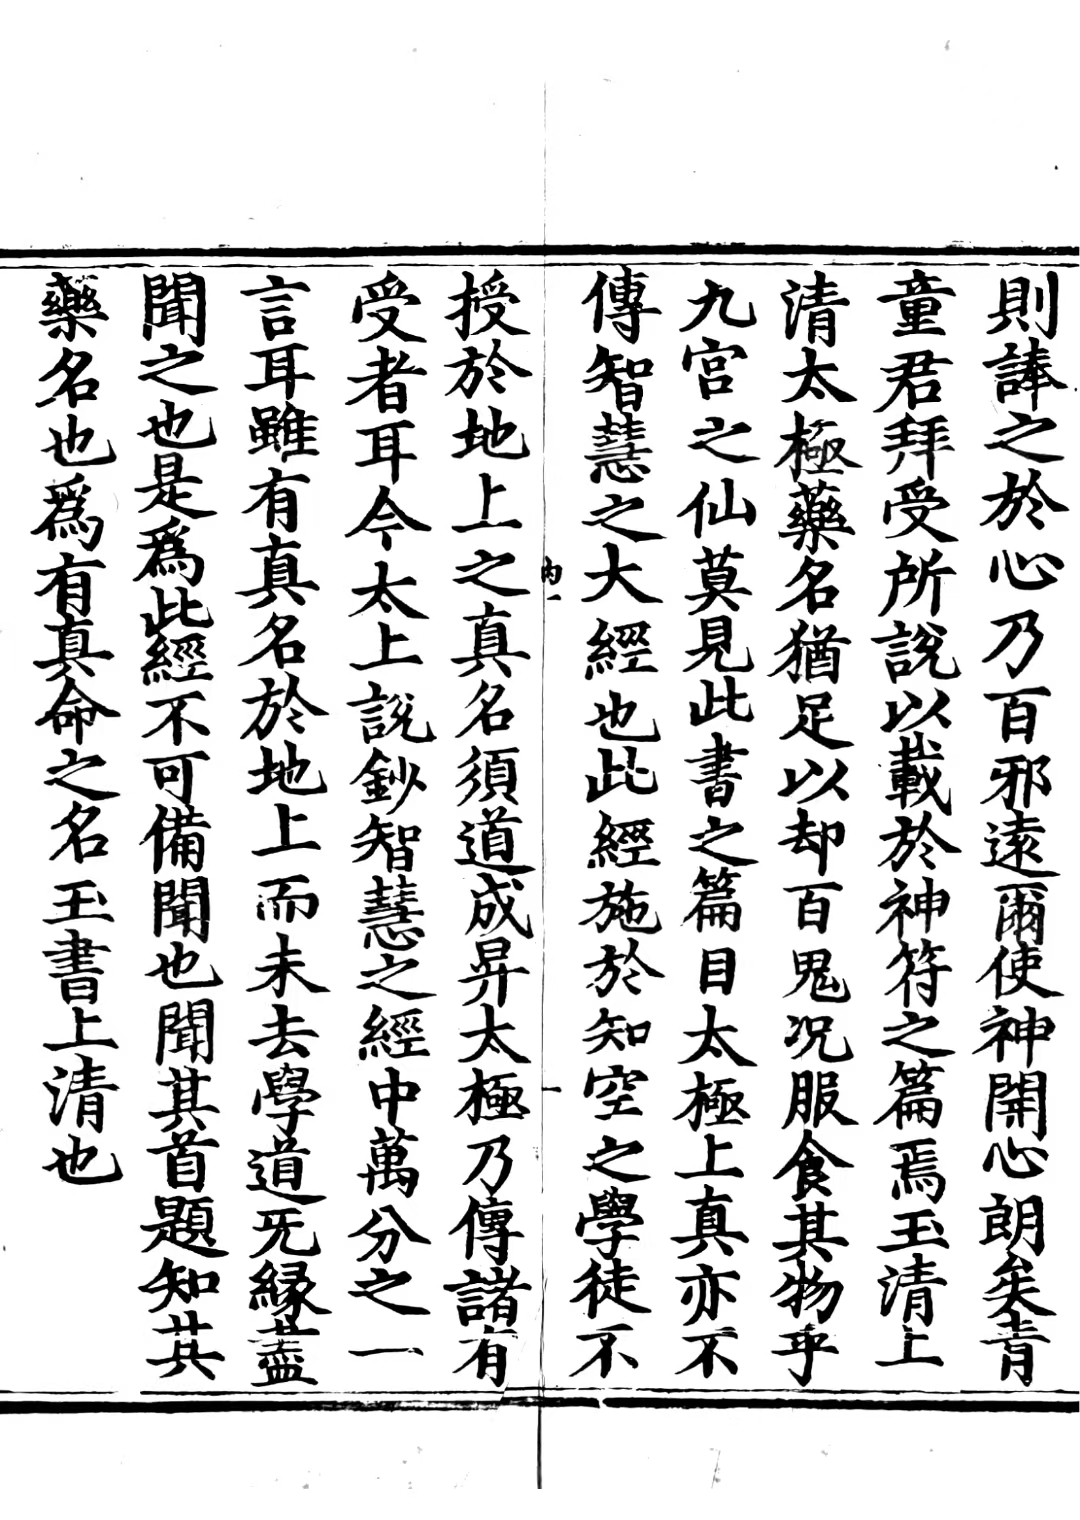 則誦之於心乃百邪遠爾使神開心朗矣青
童君拜受所說以載於神符之篇焉玉清上
清太極藥名猶足以却百鬼况服食其物乎
九宮之仙莫見此書之篇目太極上真亦不
傳智慧之大經也此經施於知空之學徒不
内一
一
授於地上之真名須道成昇太極乃傳諸有
受者耳今太上說鈔智慧之經中萬分之一
言耳雖有真名於地上而未去學道旡緣盡
聞之也是爲此經不可備聞也聞其首題知其
藥名也爲有真命之名玉書上清也